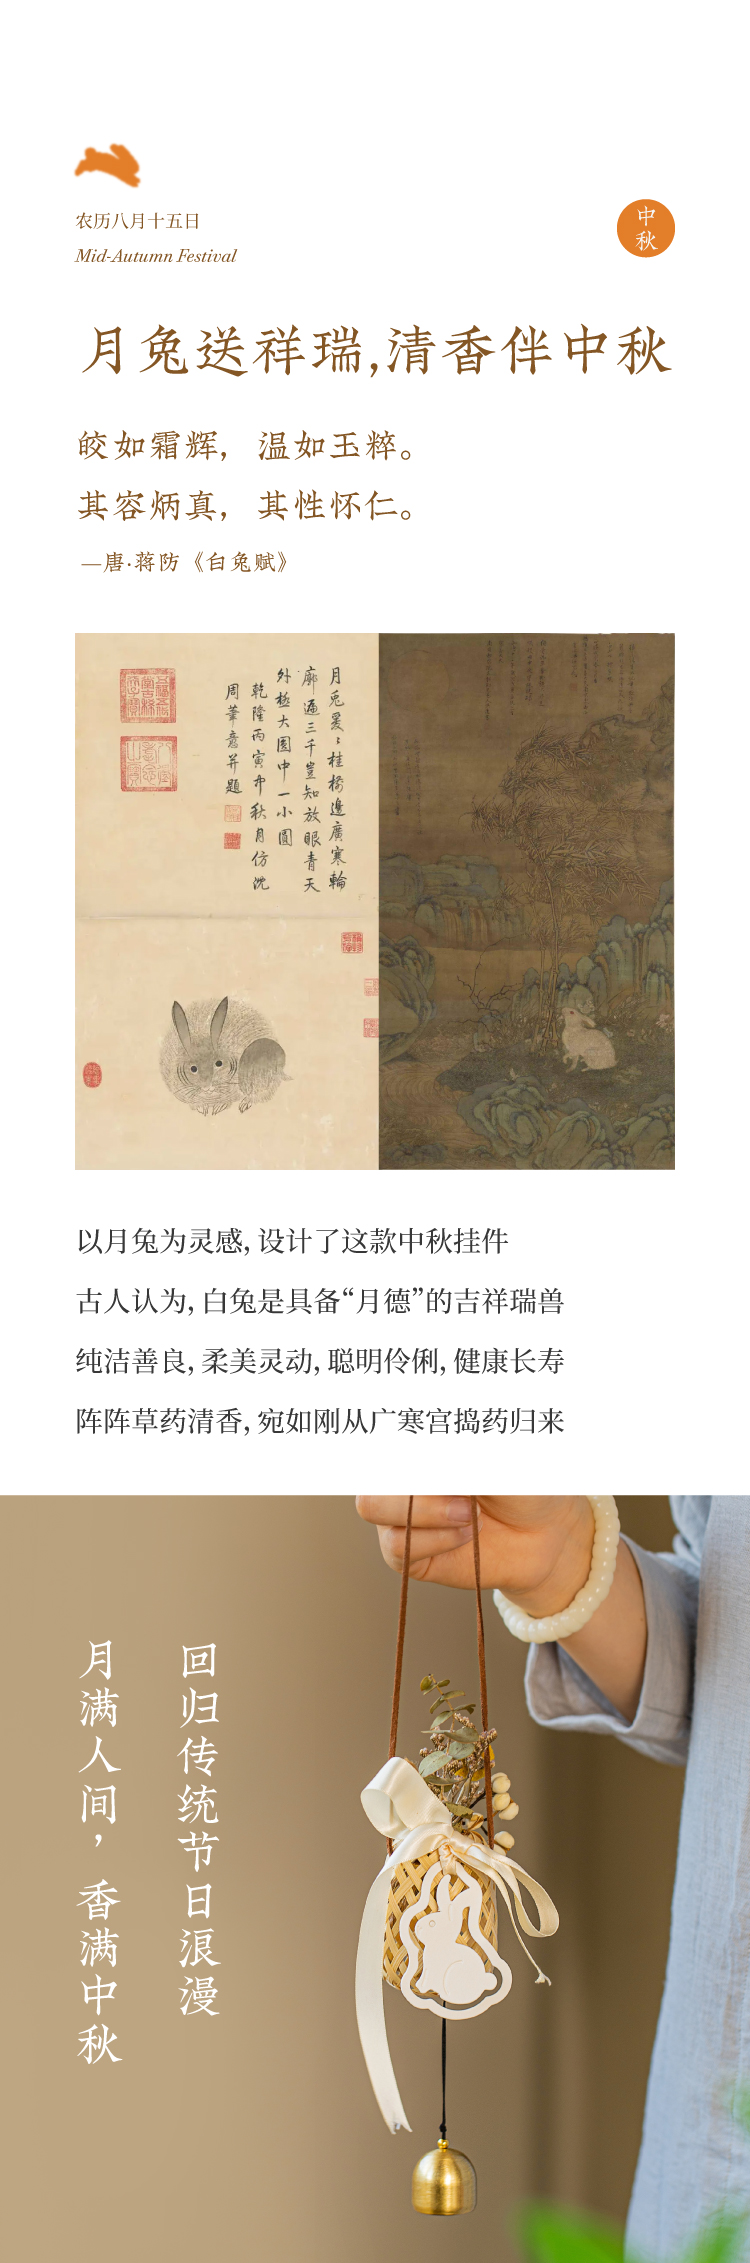 农历八月十五日
Mid-Autumn Festival
中
秋
月兔送祥瑞,清香伴中秋
皎如霜辉，温如玉粹。
其容炳真，其性怀仁。
—唐·蒋防《白兔赋》
廓通三千岂知放眼青天
外极大圆中一小圆
乾隆丙寅中秋月仿沈
周笔意并题
以月兔为灵感,设计了这款中秋挂件
古人认为,白兔是具备“月德”的吉祥瑞兽
纯洁善良,柔美灵动,聪明伶俐,健康长寿
阵阵草药清香,宛如刚从广寒宫捣药归来
回归传统节日浪漫
月满人间，香满中秋